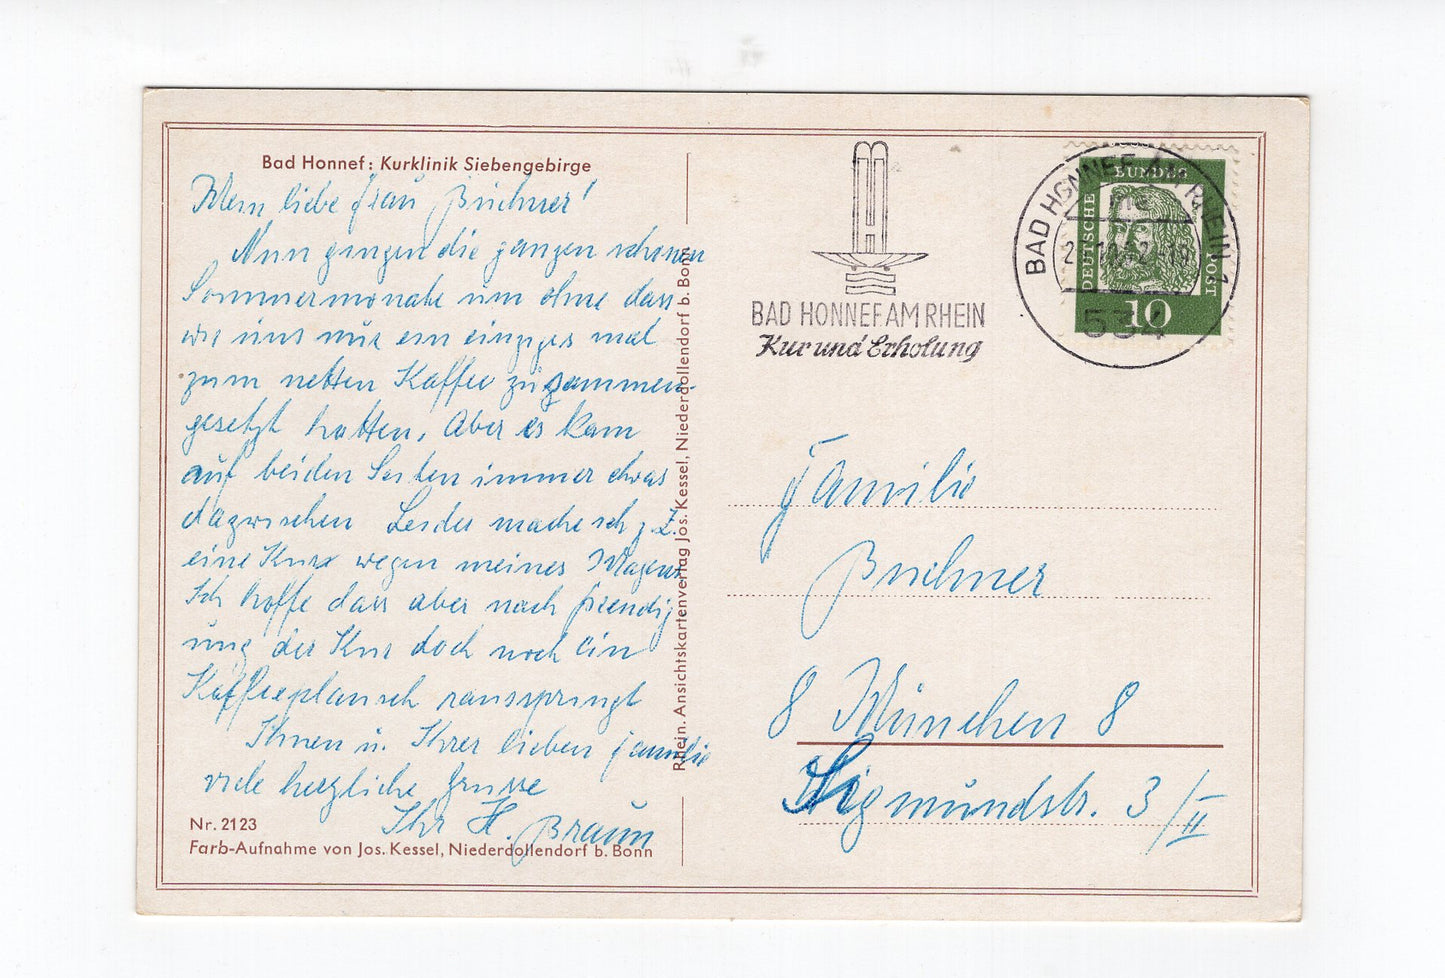 Bad Honnef: Kurklinik Siebengebirge
Mein liebe Frau Büchner!
Nun gingen die ganzen schönen
Sommermonate um ohne dass
wir uns nur ein einziges mal
zum netten Kaffee zusammen-
gesetzt hatten. Aber es kam
auf beiden Seiten immer etwas
dazwischen Leider mache ich z. Z.
eine Kur wegen meines Magens
Ich hoffe dass aber nach
ung der Kur doch noch ein
Kaffeeplausch rausspringt
Ihnen u. Ihrer lieben Familie
viele herzliche Grüsse
Ihr H. Braun
Nr. 2123
Farb-Aufnahme von Jos. Kessel, Niederdollendorf b. Bonn
Rhein. Ansichtskartenverlag Jos. Kessel, Niederdollendorf b. Bonn
BAD HONNEF AM RHEIN
Kur und Erholung
BAD HONNEF AM RHEIN 1
534
DEUTSCHE
BUNDES
POST
10
Familie
Büchner
8 München 8
Sigmundstr. 3/II